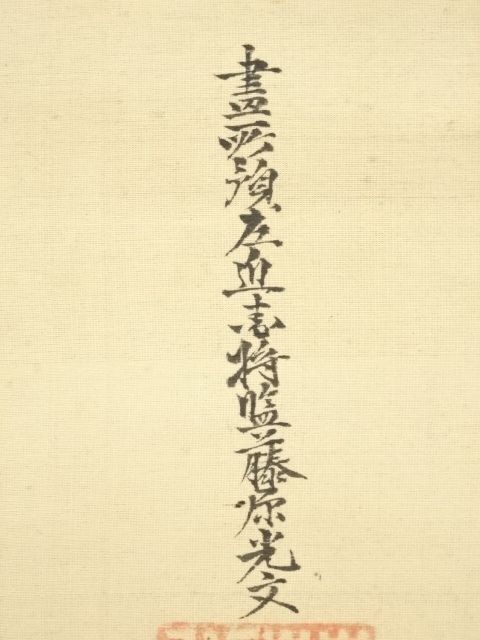 畫所預左近衛将監藤原光文